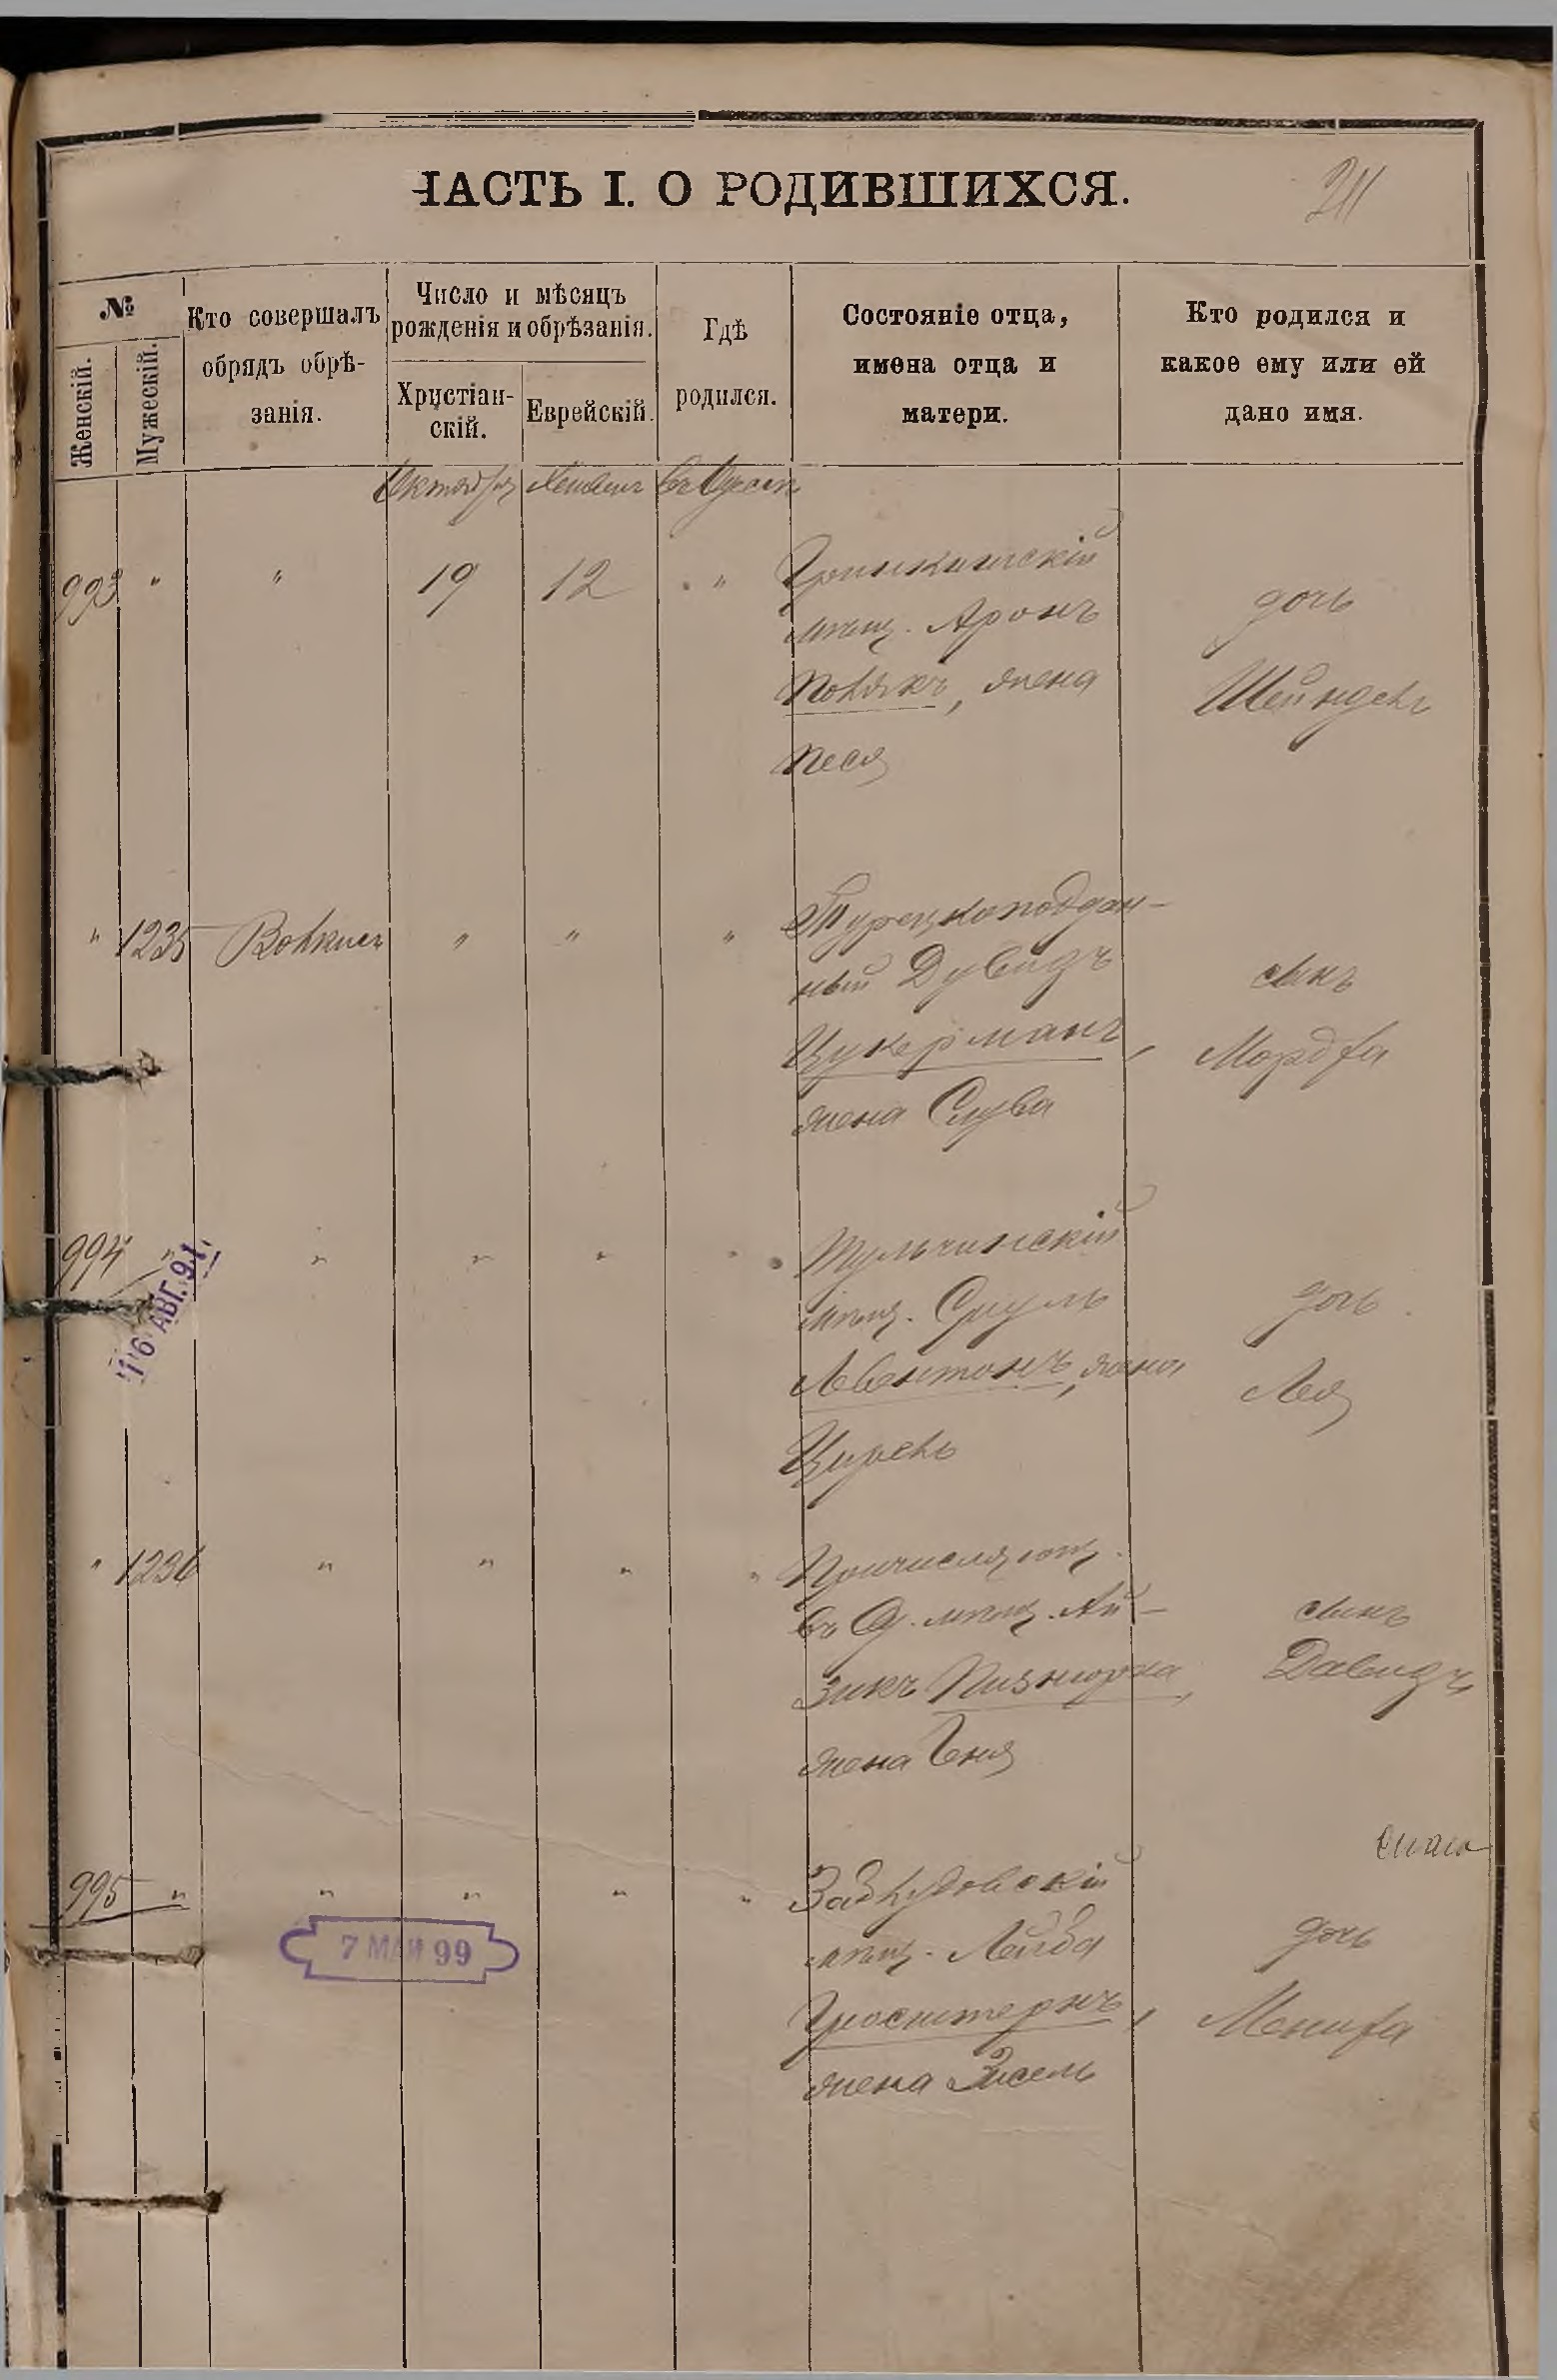 ЧАСТЬ I. О РОДИВШИХСЯ.
211
№
Женскій.
Мужескій.
Кто совершалъ
обрядъ обрѣ-
занія.
Число и мѣсяцъ
рожденія и обрѣзанія.
Христіан-
скій.
Еврейскій.
Гдѣ
родился.
Состояніе отца,
имена отца и
матери.
Кто родился и
какое ему или ей
дано имя.
Октября Хешвенъ Въ Одессѣ
993 " " 19 12 "
Гринкишскій
мѣщ. Аронъ
Полякъ, жена
Песя
дочь
Шейндель
" 1235 Волкисъ " " "
Турецкоподдан-
ный Дувидъ
Цукерманъ,
жена Слува
сынъ
Мордха
994 " " " " "
16 АВГ. 91.
Тульчинскій
мѣщ. Сруль
Авентонъ, жена
Цирель
дочь
Лея
" 1236 " " " "
Причисляющ.
въ Од. мѣщ. Ай-
зикъ Пизнюрка,
жена Геня
сынъ
Давидъ
995 " " " " "
7 МАЙ 99
мѣщ. Лейба
Гросштернъ,
жена Зисель
дочь
Мениха